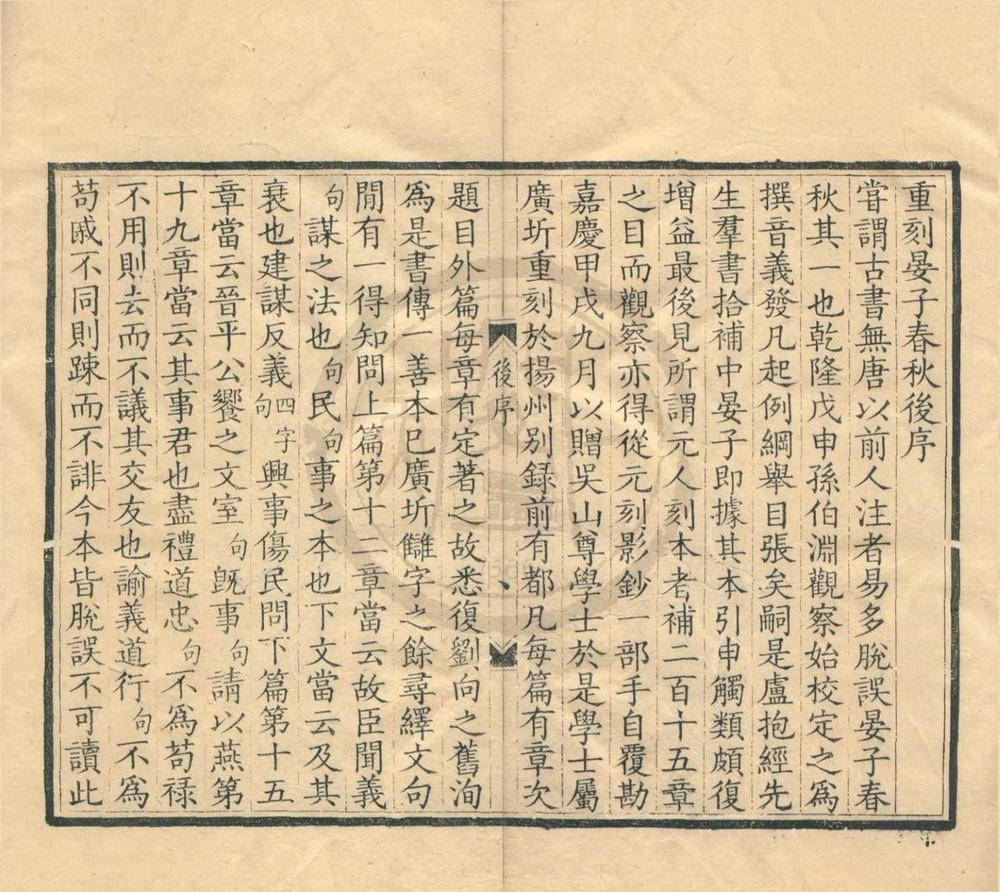 重刻晏子春秋後序
嘗謂古書無唐以前人注者易多脫誤晏子春
秋其一也乾隆戊申孫伯淵觀察始校定之爲
撰音義發凡起例綱舉目張矣嗣是盧抱經先
生羣書拾補中晏子即據其本引申觸類頗復
增益最後見所謂元人刻本者補二百十五章
之目而觀察亦得從元刻影鈔一部手自覆勘
嘉慶甲戌九月以贈吳山尊學士於是學士屬
廣圻重刻於揚州別録前有都凡每篇有章次
後序
題目外篇每章有定著之故悉復劉向之舊洵
爲是書傳一善本巳廣圻讎字之餘尋繹文句
閒有一得知問上篇第十二章當云故臣聞義
句謀之法也句民句事之本也下文當云及其
衰也建謀反義四字句興事傷民問下篇第十五
章當云晉平公饗之文室句旣事句請以燕第
十九章當云其事君也盡禮道忠句不爲苟禄
不用則去而不議其交友也諭義道行句不爲
苟戚不同則踈而不誹今本皆脫誤不可讀此